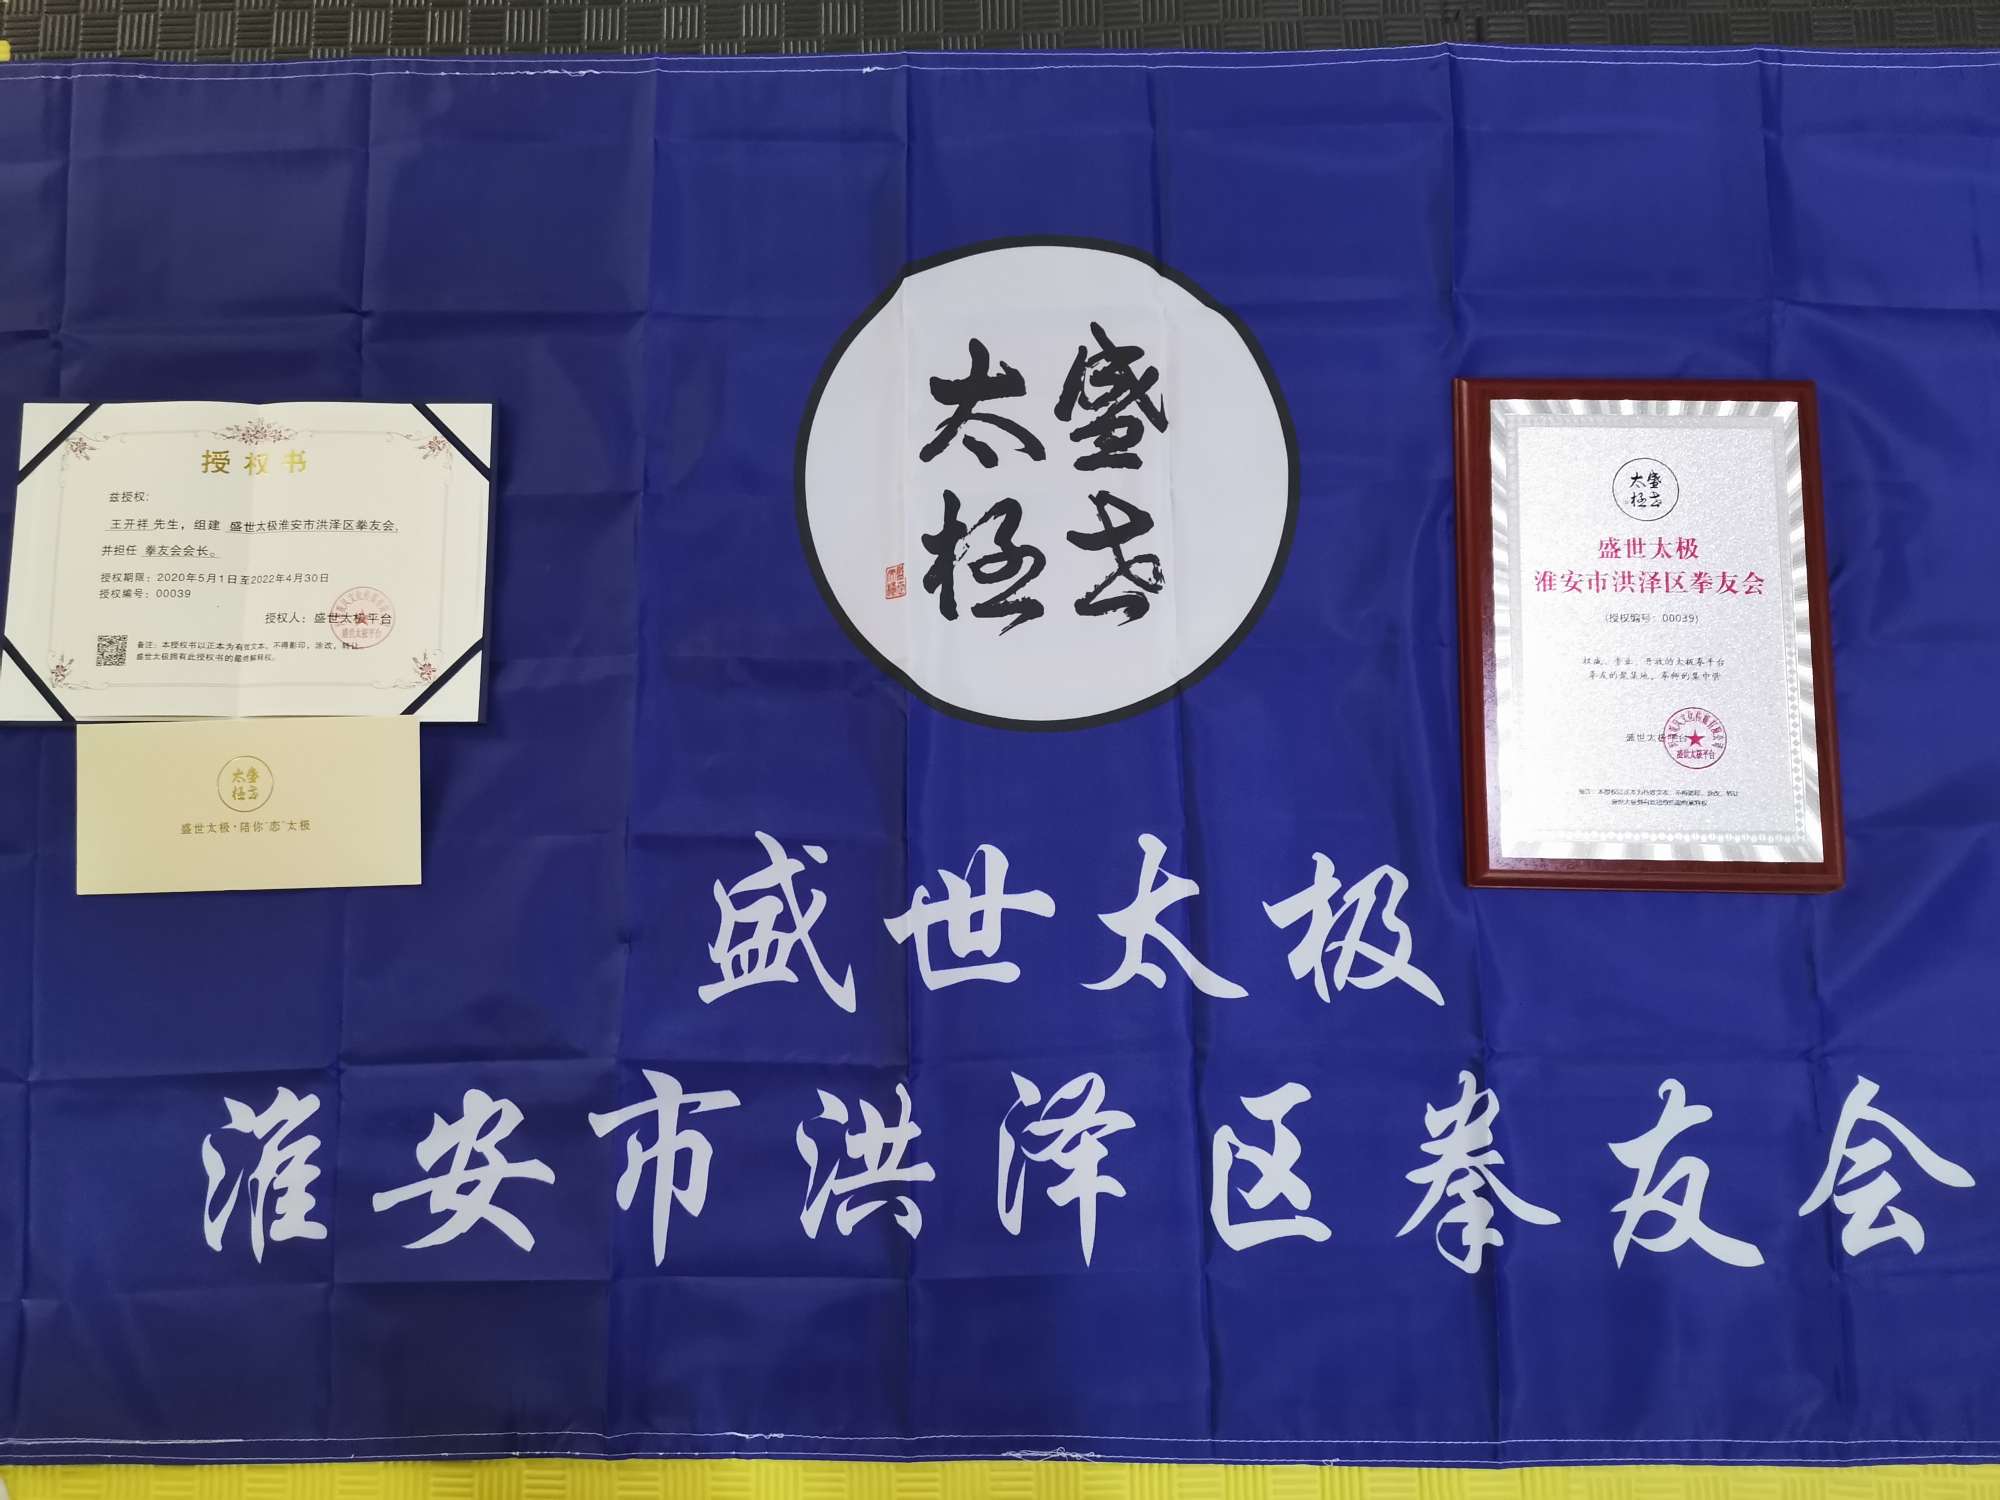 盛世
太极
授权书
兹授权：
王开祥 先生，组建 盛世太极淮安市洪泽区拳友会，
并担任 拳友会会长。
授权期限：2020年5月1日至2022年4月30日
授权编号：00039
授权人：盛世太极平台
盛世太极平台
备注：本授权书以正本为有效文本，不得影印，涂改，转让
盛世太极拥有此授权书的最终解释权。
盛世
太极
盛世太极·陪你“恋”太极
盛世
太极
盛世太极
淮安市洪泽区拳友会
(授权编号：00039)
权威、专业、开放的太极拳平台
拳友的聚集地，拳师的集中营
盛世太极平台
盛世太极平台
备注：本授权以正本为有效文本，不得影印，涂改，转让
盛世太极
淮安市洪泽区拳友会